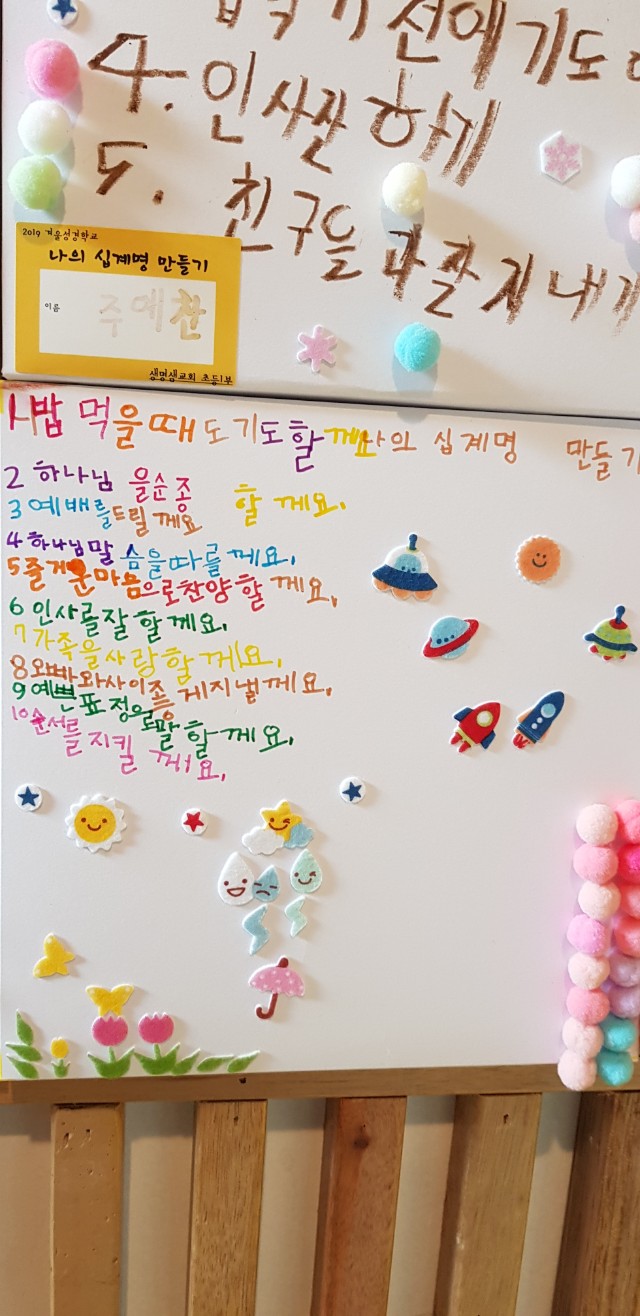 선에기도
4. 인사잘하게
5. 친구들과잘지내기
2019 겨울성경학교
나의 십계명 만들기
이름 주예찬
생명샘교회 초등1부
1 밥 먹을때 도기도할께요 나의 십계명 만들기
2 하나님 을순종 할 께요.
3 예배를드릴께요
4 하나님말 슴을따를께요.
5 즐거운마음으로찬양할 께요.
6 인사를잘할께요.
7 가족을사랑할께요.
8 오빠와사이좋게지낼께요.
9 예쁜표정으로말할께요.
10 순서를지킬께요.